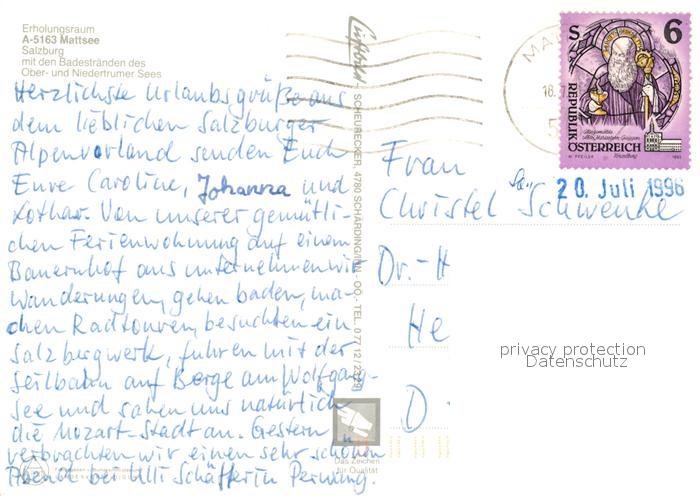 Erholungsraum
A-5163 Mattsee
Salzburg
mit den Badestränden des
Ober- und Niedertrumer Sees
Herzlichste Urlaubsgrüße aus
dem lieblichen Salzburger
Alpenvorland senden Euch
Eure Caroline, Johanna und
Lothar. Von unserer gemütli-
chen Ferienwohnung auf einem
Bauernhof aus unternehmen wir
Wanderungen, gehen baden, ma-
chen Radtouren, besuchten ein
Salzbergwerk, fuhren mit der
Seilbahn auf Berge am Wolfgang-
see und sahen uns natürlich
die Mozart-Stadt an. Gestern
verbrachten wir einen sehr schönen
Abend bei Ulli Schäffer in Perwang.
SCHEURECKER, 4780 SCHÄRDING/INN - OÖ. - TEL. 0 77 12 /
Das Zeichen
für Qualität
S 6
REPUBLIK
ÖSTERREICH
1993
MAT
18.
5
20. Juli 1996
Frau
Christel Schwenke
Dr.-H
He
D
privacy protection
Datenschutz